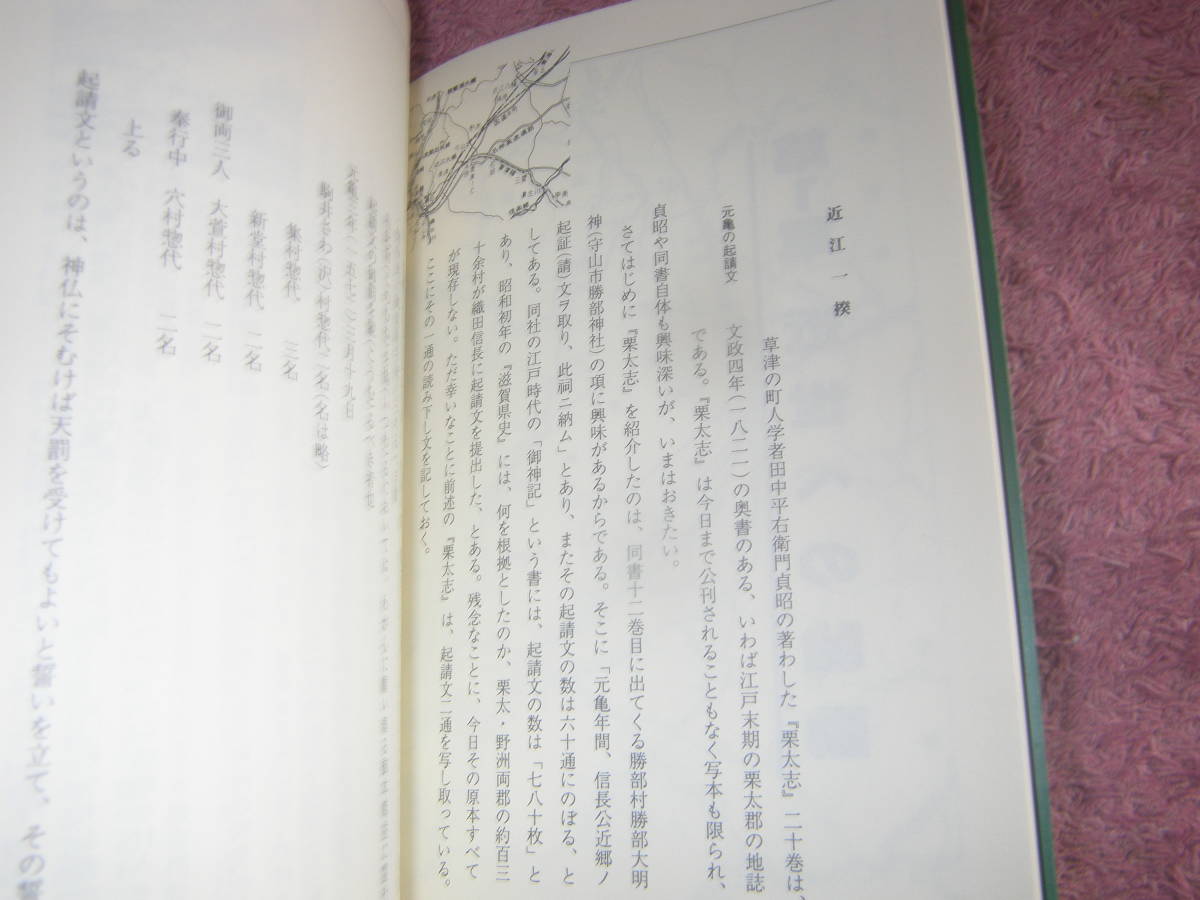 近江一揆
元亀の起請文
草津の町人学者田中平右衛門貞昭の著わした『栗太志』二十巻は、
文政四年(一八二一)の奥書のある、いわば江戸末期の栗太郡の地誌
である。『栗太志』は今日まで公刊されることもなく、写本も限られ、
貞昭や同書自体も興味深いが、いまはおきたい。
さてはじめに『栗太志』を紹介したのは、同書十二巻目に出てくる勝部村勝部大明
神(守山市勝部神社)の項に興味があるからである。そこに「元亀年間、信長公近郷ノ
起証(請)文ヲ取り、此祠ニ納ム」とあり、またその起請文の数は六十通にのぼる、と
してある。同社の江戸時代の「御神記」という書には、起請文の数は「七八十枚」と
あり、昭和初年の『滋賀県史』には、何を根拠としたのか、栗太・野洲両郡の約百三
十余村が織田信長に起請文を提出した、とある。残念なことに、今日その原本すべて
が現存しない。ただ幸いなことに前述の『栗太志』は、起請文二通を写し取っている。
ここにその一通の読み下し文を記しておく。
村惣代二名(名は略)
集村惣代 三名
新堂村惣代 二名
御両三人 大萱村惣代 二名
奉行中 穴村惣代 二名
上る
起請文というのは、神仏にそむけば天罰を受けてもよいと誓いを立て、その誓